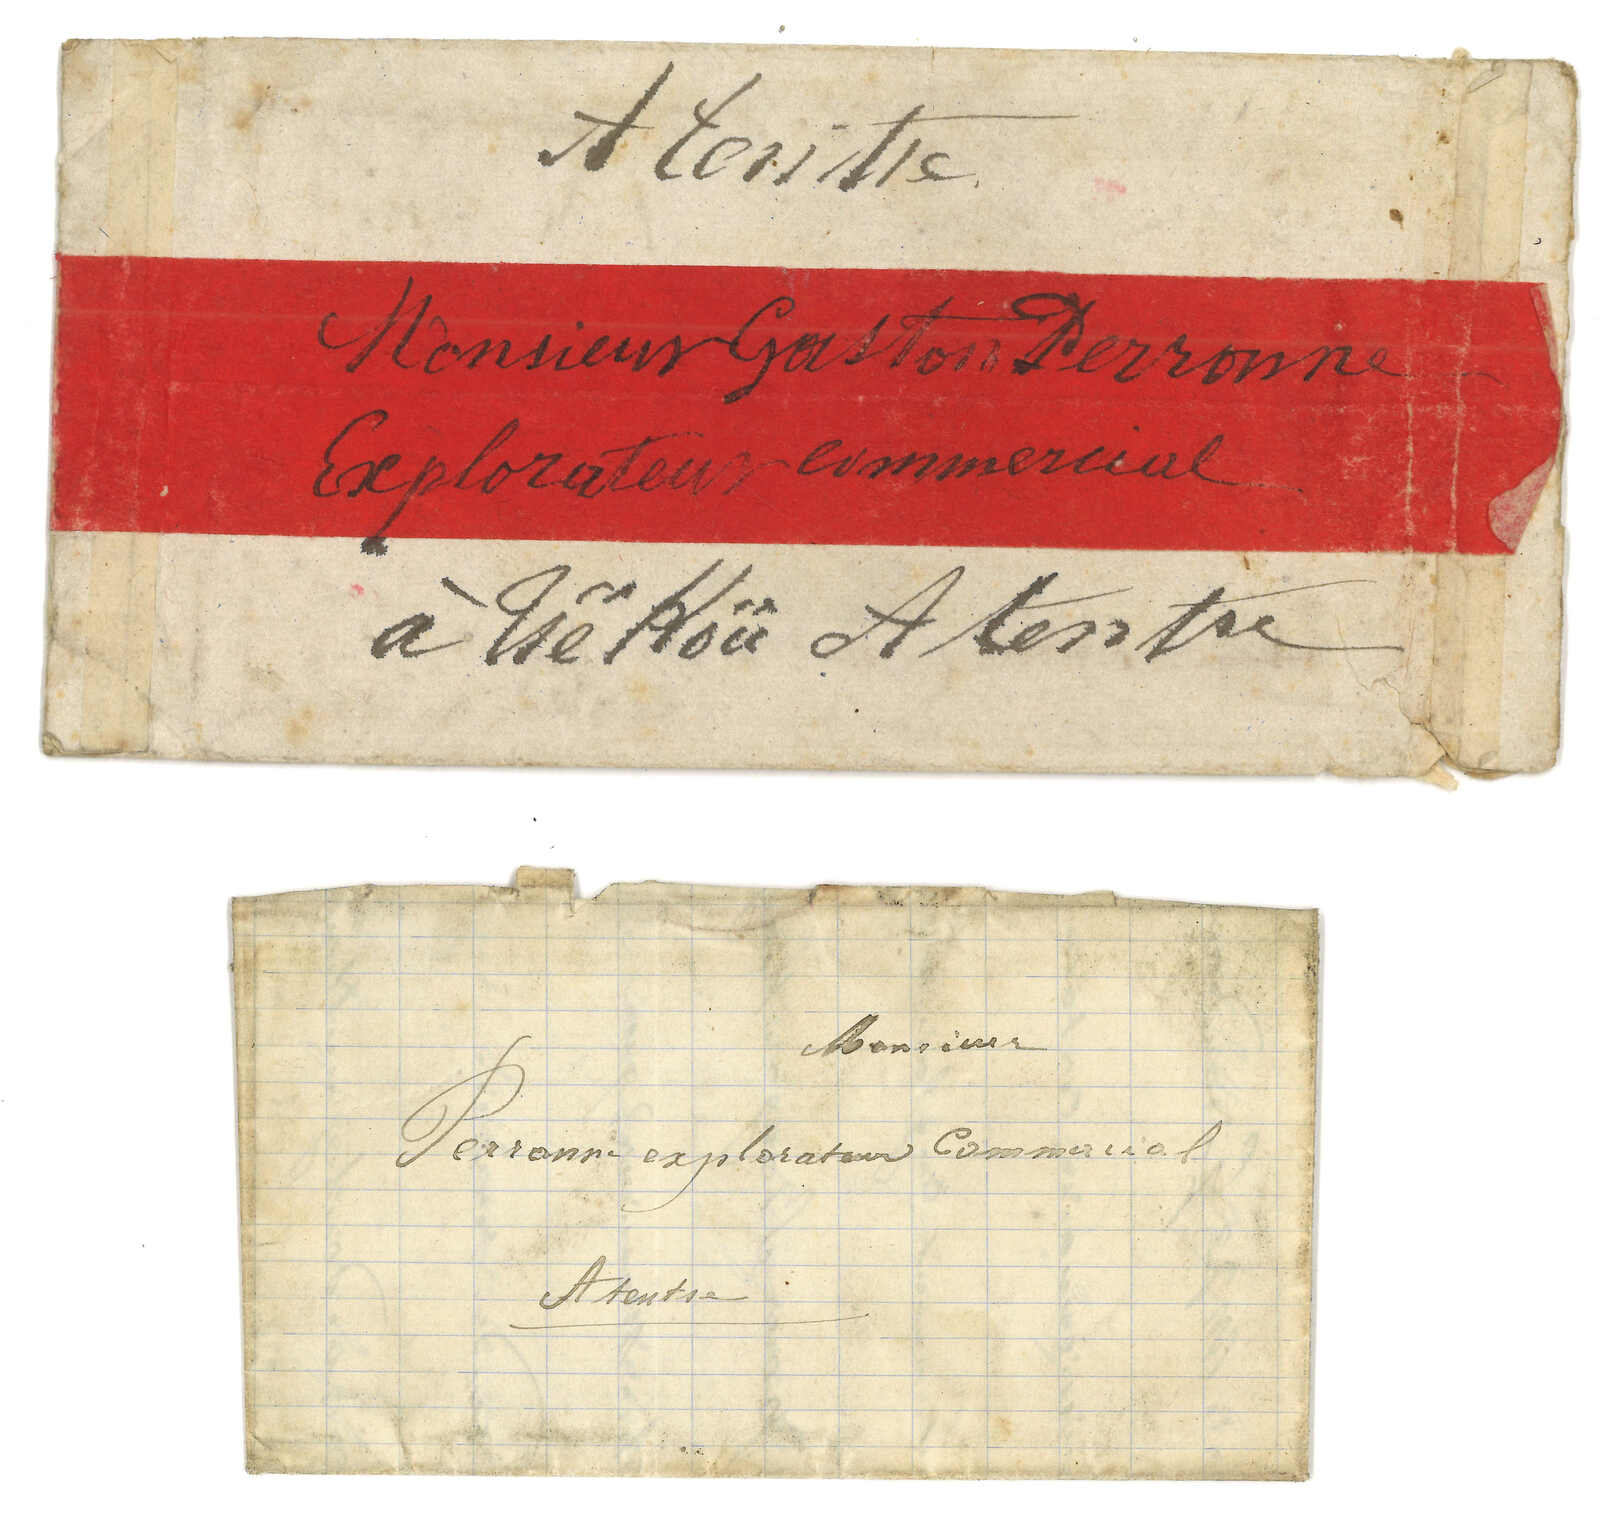 A tentse
Monsieur Gaston Perronne
Explorateur commercial
à Tsĕ Köü A tentse
Monsieur
Perronne explorateur Commercial
A tentse